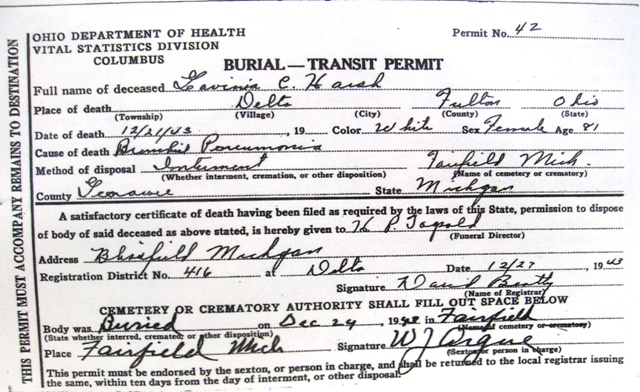 OHIO DEPARTMENT OF HEALTH
VITAL STATISTICS DIVISION
COLUMBUS
Permit No. 42
BURIAL — TRANSIT PERMIT
Full name of deceased Lavinia C. Harsh
Place of death Delta Fulton Ohio
(Township) (Village) (City) (County) (State)
Date of death 12/21/43, 19 Color White Sex Female Age 81
Cause of death Bronchial Pneumonia
Method of disposal Interment Fairfield Mich.
(Whether interment, cremation, or other disposition) (Name of cemetery or crematory)
County Lenawee State Michgan
A satisfactory certificate of death having been filed as required by the laws of this State, permission to dispose
of body of said deceased as above stated, is hereby given to P.
(Funeral Director)
Address Blissfield Michgan
Registration District No. 416 at Delta Date 12/27, 1943
Signature
(Name of Registrar)
CEMETERY OR CREMATORY AUTHORITY SHALL FILL OUT SPACE BELOW
Body was Buried on Dec 24, 19 in Fairfield
(State whether interred, cremated, or other disposition) (Name of cemetery or crematory)
Place Fairfield Mich Signature W J Argue
(Sexton or person in charge)
This permit must be endorsed by the sexton, or person in charge, and shall be returned to the local registrar issuing
the same, within ten days from the day of interment, or other disposal.
THIS PERMIT MUST ACCOMPANY REMAINS TO DESTINATION